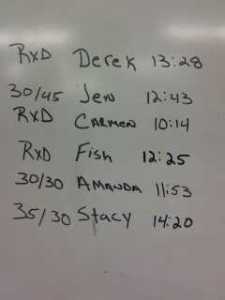 RxD Derek 13:28
30/45 Jen 12:43
RxD CARMEN 10:14
RxD Fish 12:25
30/30 AMANDA 11:53
35/30 Stacy 14:20